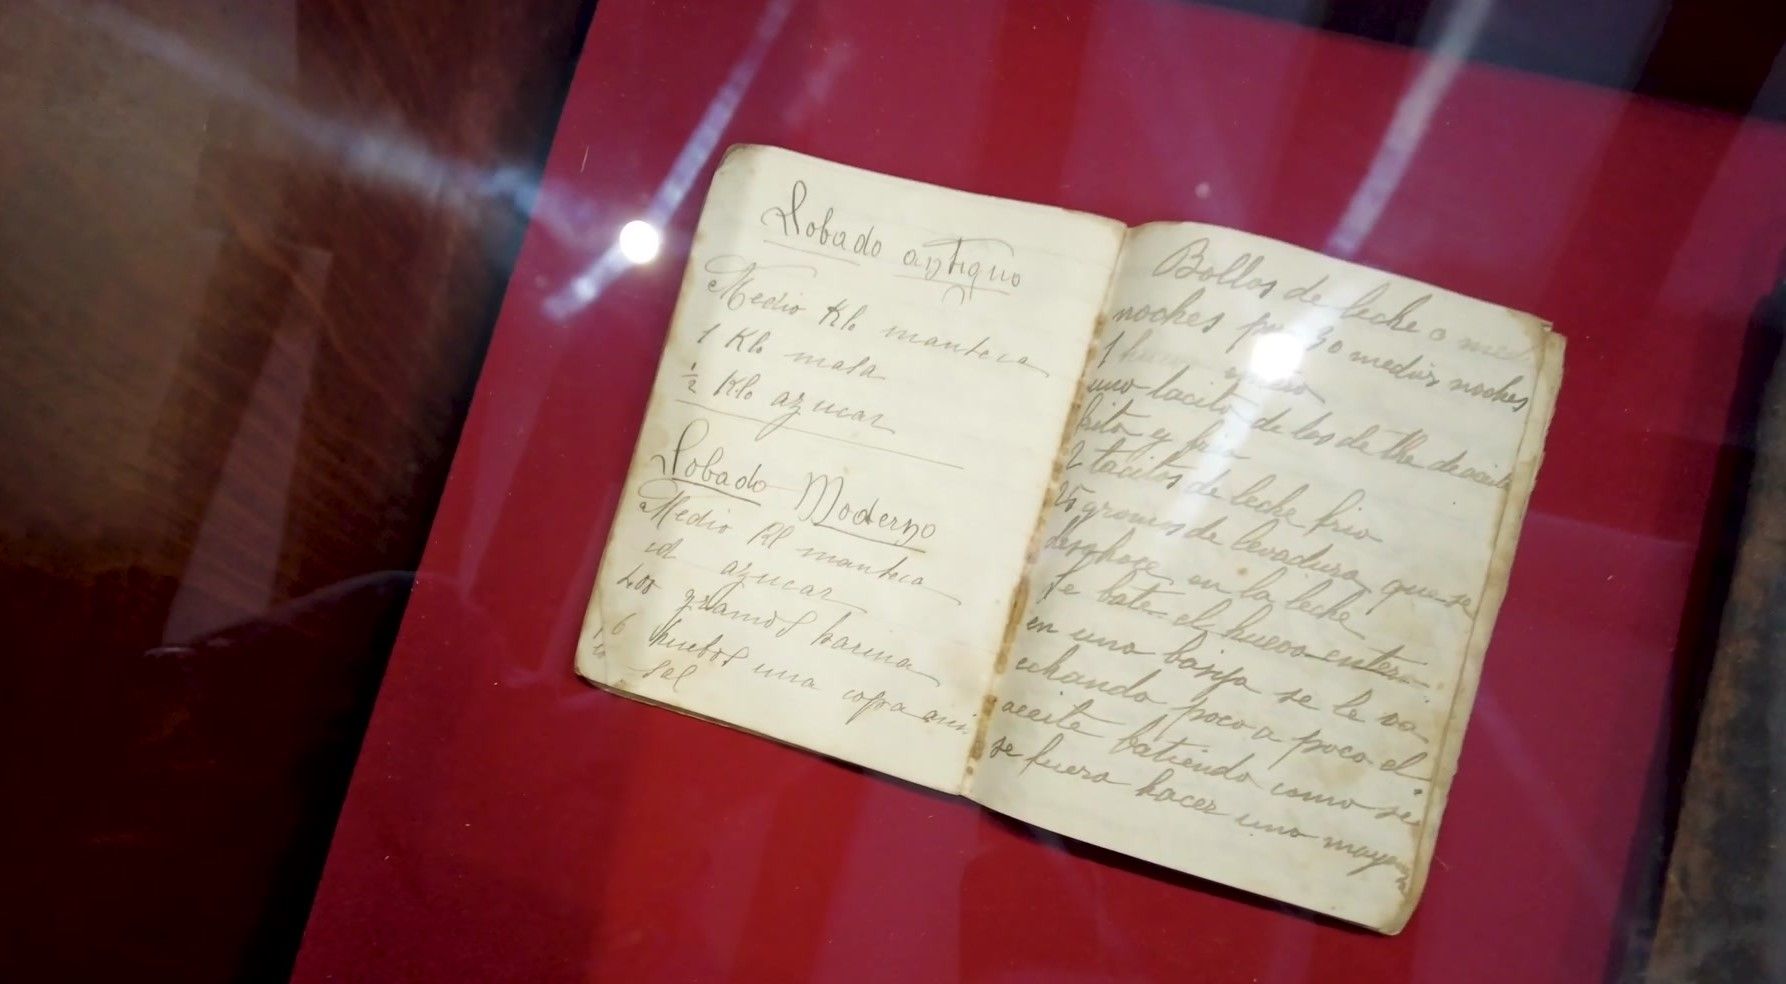 Lobado antiguo
Medio Klo manteca
1 Klo masa
½ Klo azucar
Lobado Moderno
Medio Kl manteca
id azucar
400 gramos harina
6 huebos una copra anis
sal
Bollos de leche o
noches para 30 medias noches
1 huevo
una tacita de las de the de aceite
frito y frio
2 tacitas de leche fria
25 gramos de levadura que se
desghace en la leche
se bate el huevo entero
en una basija se le va
echando poco a poco el
aceite batiendo como si
se fuera hacer una